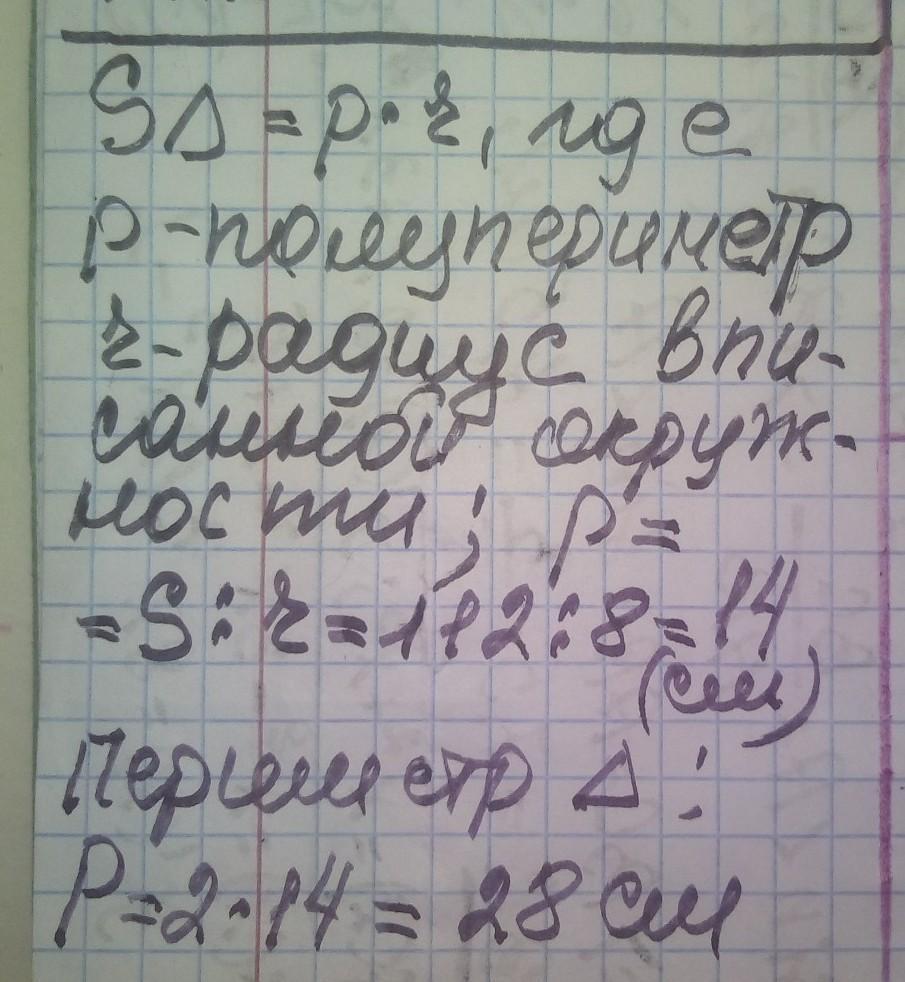 S∆ = p·r, где
p-полупериметр
r-радиус впи-
санной окруж-
ности; p=
=S:r=112:8=14
(см)
Периметр ∆:
P=2·14=28 см